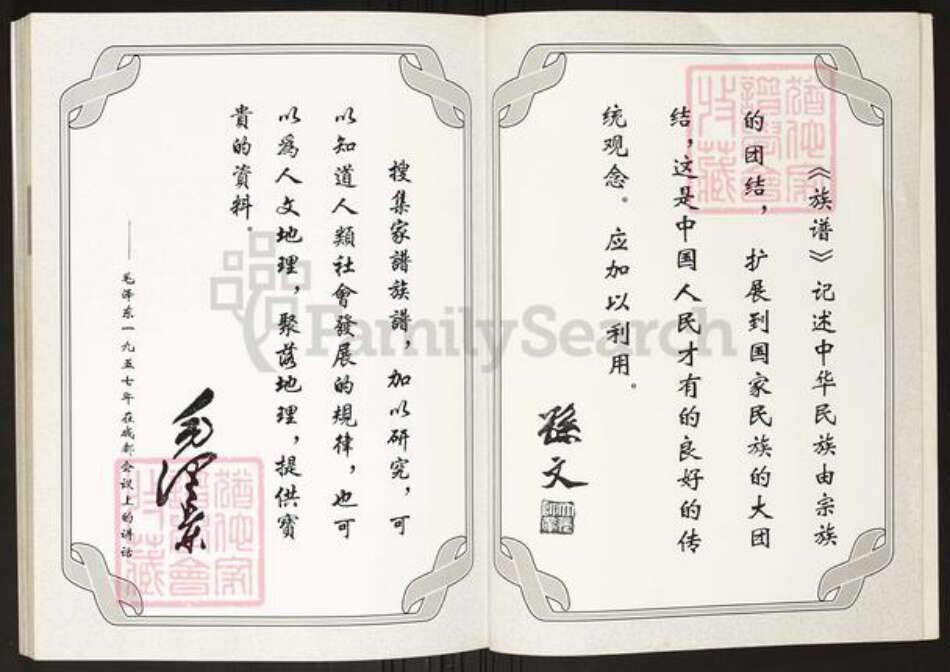 《族谱》记述中华民族由宗族
的团结，扩展到国家民族的大团
结，这是中国人民才有的良好的传
统观念。应加以利用。
孫文
搜集家譜族譜，加以研究，可
以知道人類社會發展的規律，也可
以爲人文地理，聚落地理，提供寳
貴的資料。
毛泽东
——毛泽东一九五七年在成都会议上的讲话
猶他家
譜學會
收藏
猶他家
譜學會
收藏
FamilySearch